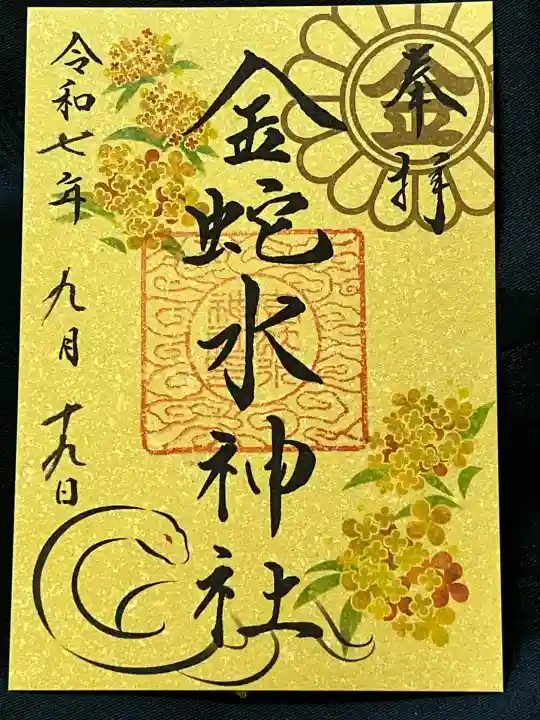 奉拝
金
金蛇水神社
令和七年 九月 十九日